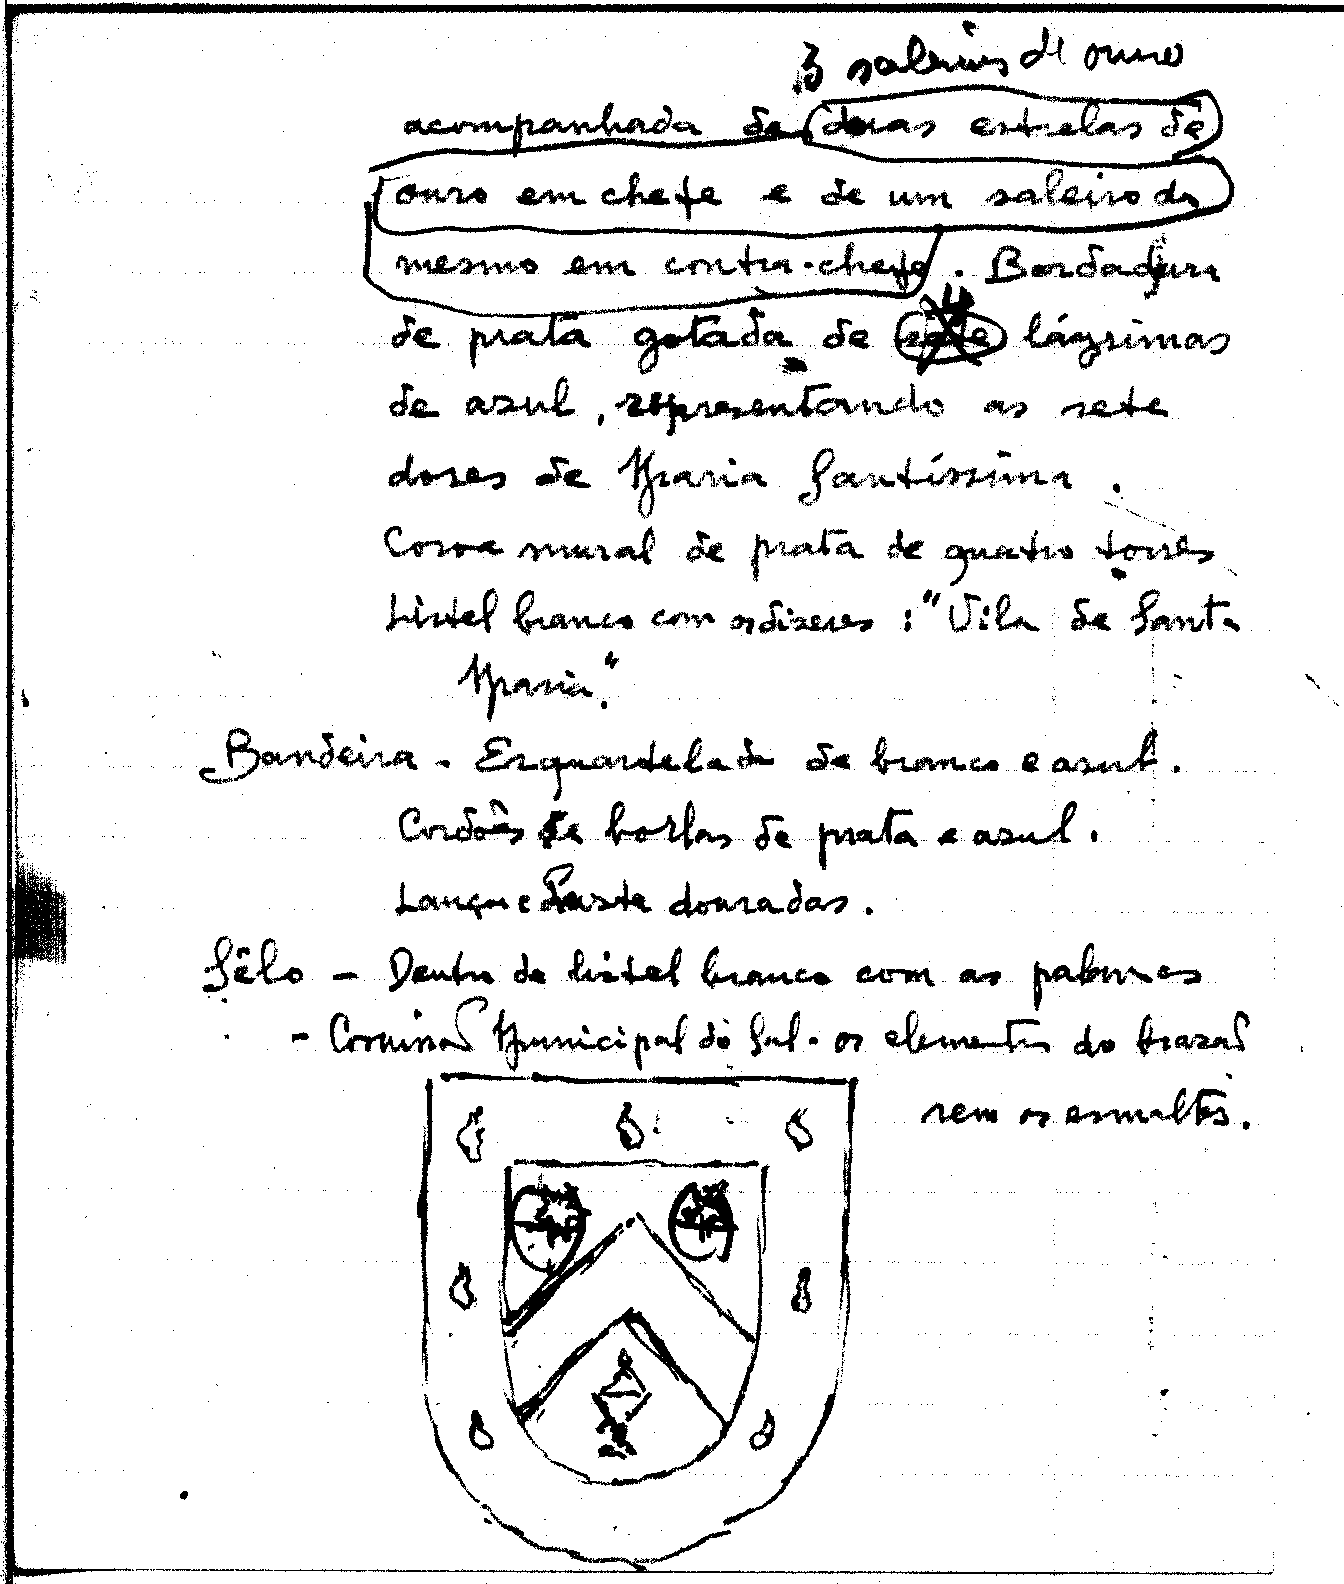 3 saleiros de ouro
acompanhada de duas estrelas de
ouro em chefe e de um saleiro do
mesmo em contra-chefe. Bordadura
de prata gotada de sete lágrimas
de azul, representando as sete
dores de Maria Santíssima.
Coroa mural de prata de quatro torres
Listel branco com os dizeres: "Vila de Santa
Maria."
Bandeira - Esquartelada de branco e azul.
Cordões e borlas de prata e azul.
Lança e haste douradas.
Sêlo - Dentro de listel branco com as palavras
- Municipal do Sal - os elementos do brazão
sem os esmaltes.